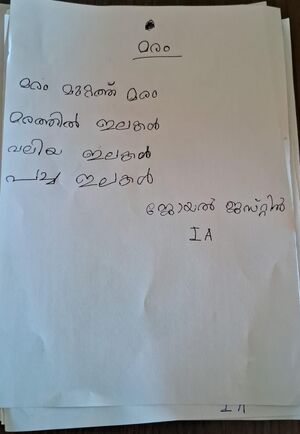 മരം
മരം മുറ്റത്ത് മരം
മരത്തിൽ ഇലകൾ
വലിയ ഇലകൾ
പച്ച ഇലകൾ
ജോയൽ ജസ്റ്റിൻ
I A